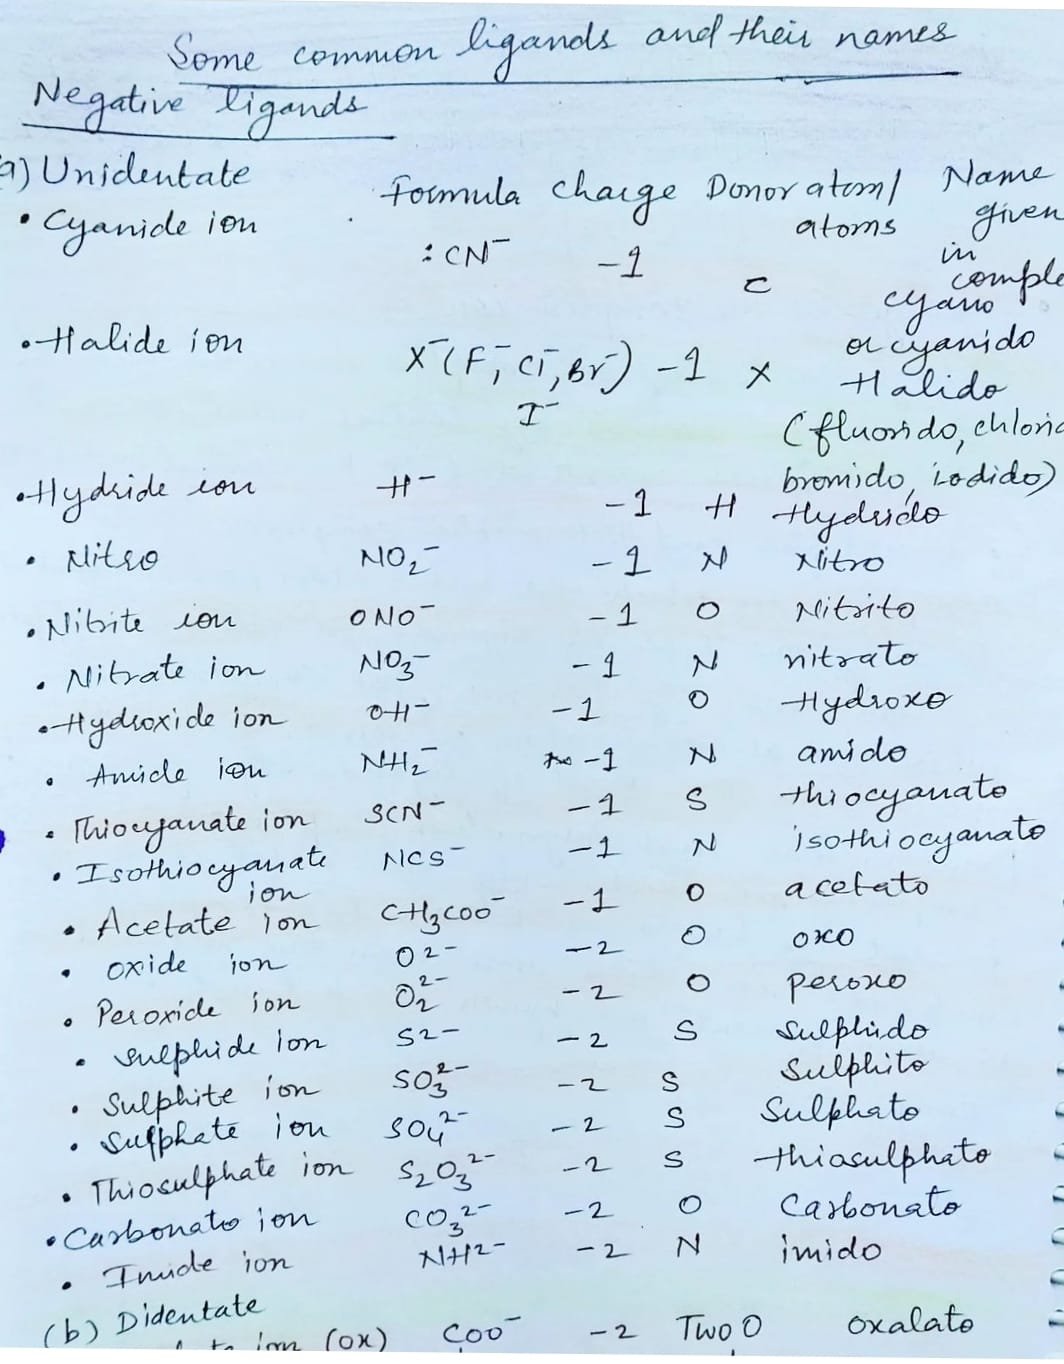 Some common ligands and their names
Negative ligands
a) Unidentate Formula charge Donor atom/ Name
• Cyanide ion atoms given
:CN⁻ -1 C in
comple
cyano
• Halide ion X⁻(F⁻, Cl⁻, Br⁻) -1 X or cyanido
I⁻ Halido
(fluorido, chlorid
bromido, iodido)
• Hydride ion H⁻ -1 H Hydrido
• Nitro NO₂⁻ -1 N Nitro
• Nitrite ion ONO⁻ -1 O Nitrito
• Nitrate ion NO₃⁻ -1 N nitrato
• Hydroxide ion OH⁻ -1 O Hydroxo
• Amide ion NH₂⁻ -1 N amido
• Thiocyanate ion SCN⁻ -1 S thiocyanato
• Isothiocyanate NCS⁻ -1 N isothiocyanato
ion
• Acetate ion CH₃COO⁻ -1 O acetato
• oxide ion O²⁻ -2 O oxo
• Peroxide ion O₂²⁻ -2 O peroxo
• sulphide ion S²⁻ -2 S sulphido
• Sulphite ion SO₃²⁻ -2 S Sulphito
• Sulphate ion SO₄²⁻ -2 S Sulphato
• Thiosulphate ion S₂O₃²⁻ -2 S thiosulphato
• Carbonato ion CO₃²⁻ -2 O Carbonato
• Imide ion NH²⁻ -2 N imido
(b) Didentate
ion (ox) COO⁻ -2 Two O oxalato